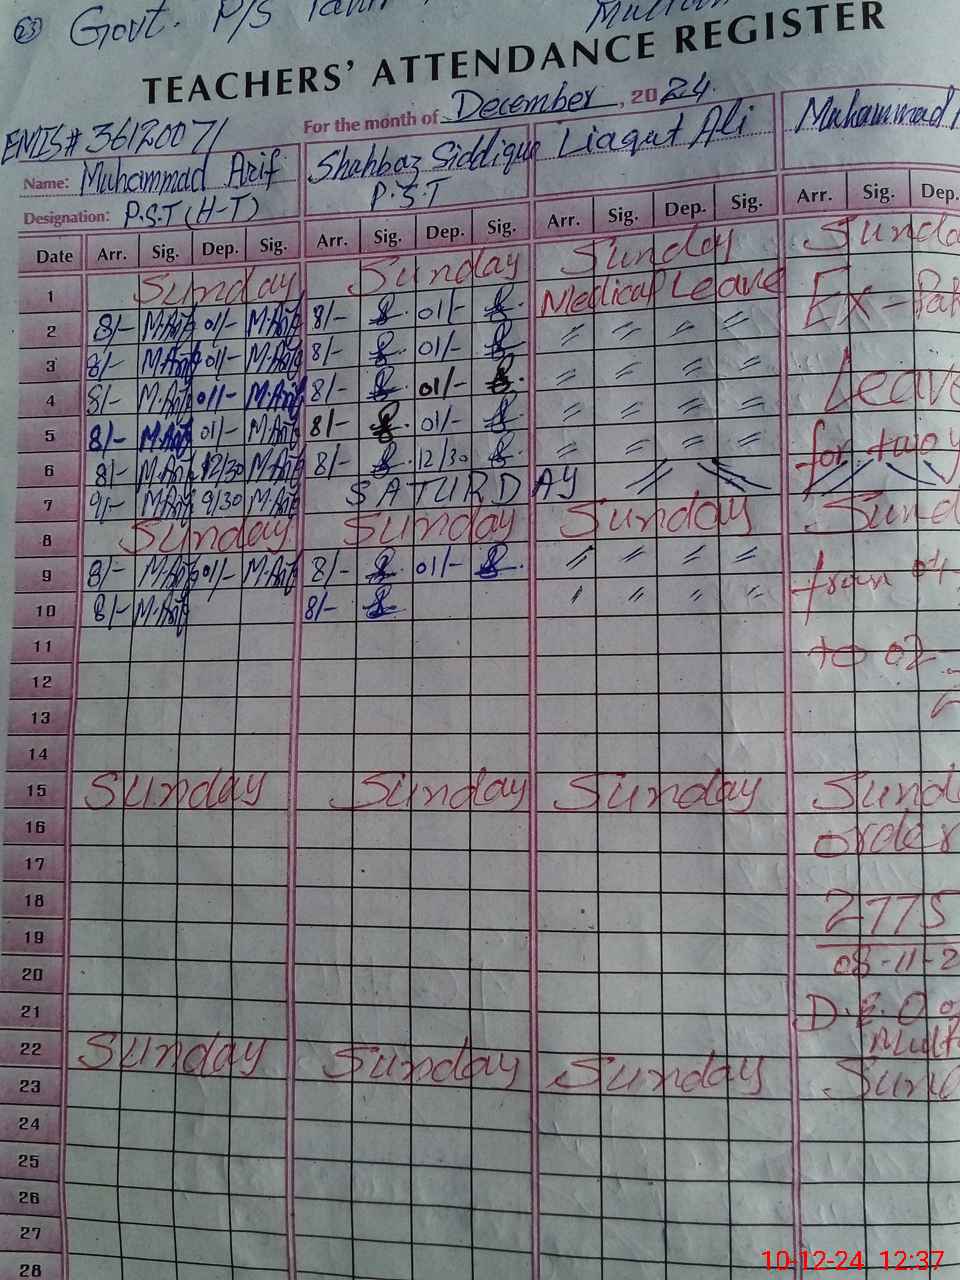 23 Govt. P/S
TEACHERS' ATTENDANCE REGISTER
EMIS# 36120071
For the month of December, 2024.
Name: Muhammad Arif Shahbaz Siddique Liaqut Ali Muhammad
Designation: P.S.T (H-T) P.S.T
Date Arr. Sig. Dep. Sig. Arr. Sig. Dep. Sig. Arr. Sig. Dep. Sig. Arr. Sig. Dep.
1 Sunday Sunday Sunday
2 8/- M.Arif 01/- M.Arif 8/- 01/- Medical Leave Ex-
3 8/- M.Arif 01/- M.Arif 8/- 01/- 〃 〃 〃 〃
4 8/- M.Arif 01/- M.Arif 8/- 01/- 〃 〃 〃 〃 Leave
5 8/- M.Arif 01/- M.Arif 8/- 01/- 〃 〃 〃 〃
6 8/- M.Arif 12/30 M.Arif 8/- 12/30 〃 〃 〃 〃 for two
7 9/- M.Arif 9/30 M.Arif SATURDAY
8 Sunday Sunday Sunday
9 8/- M.Arif 01/- M.Arif 8/- 01/- 〃 〃 〃 〃
10 8/- M.Arif 8/- 〃 〃 〃 〃 from
11 to 02
12
13
14
15 Sunday Sunday Sunday
16 order
17
18 2775
19 08-11-2
20
21 D.E.O
22 Sunday Sunday Sunday
23
24
25
26
27
28
10-12-24 12:37